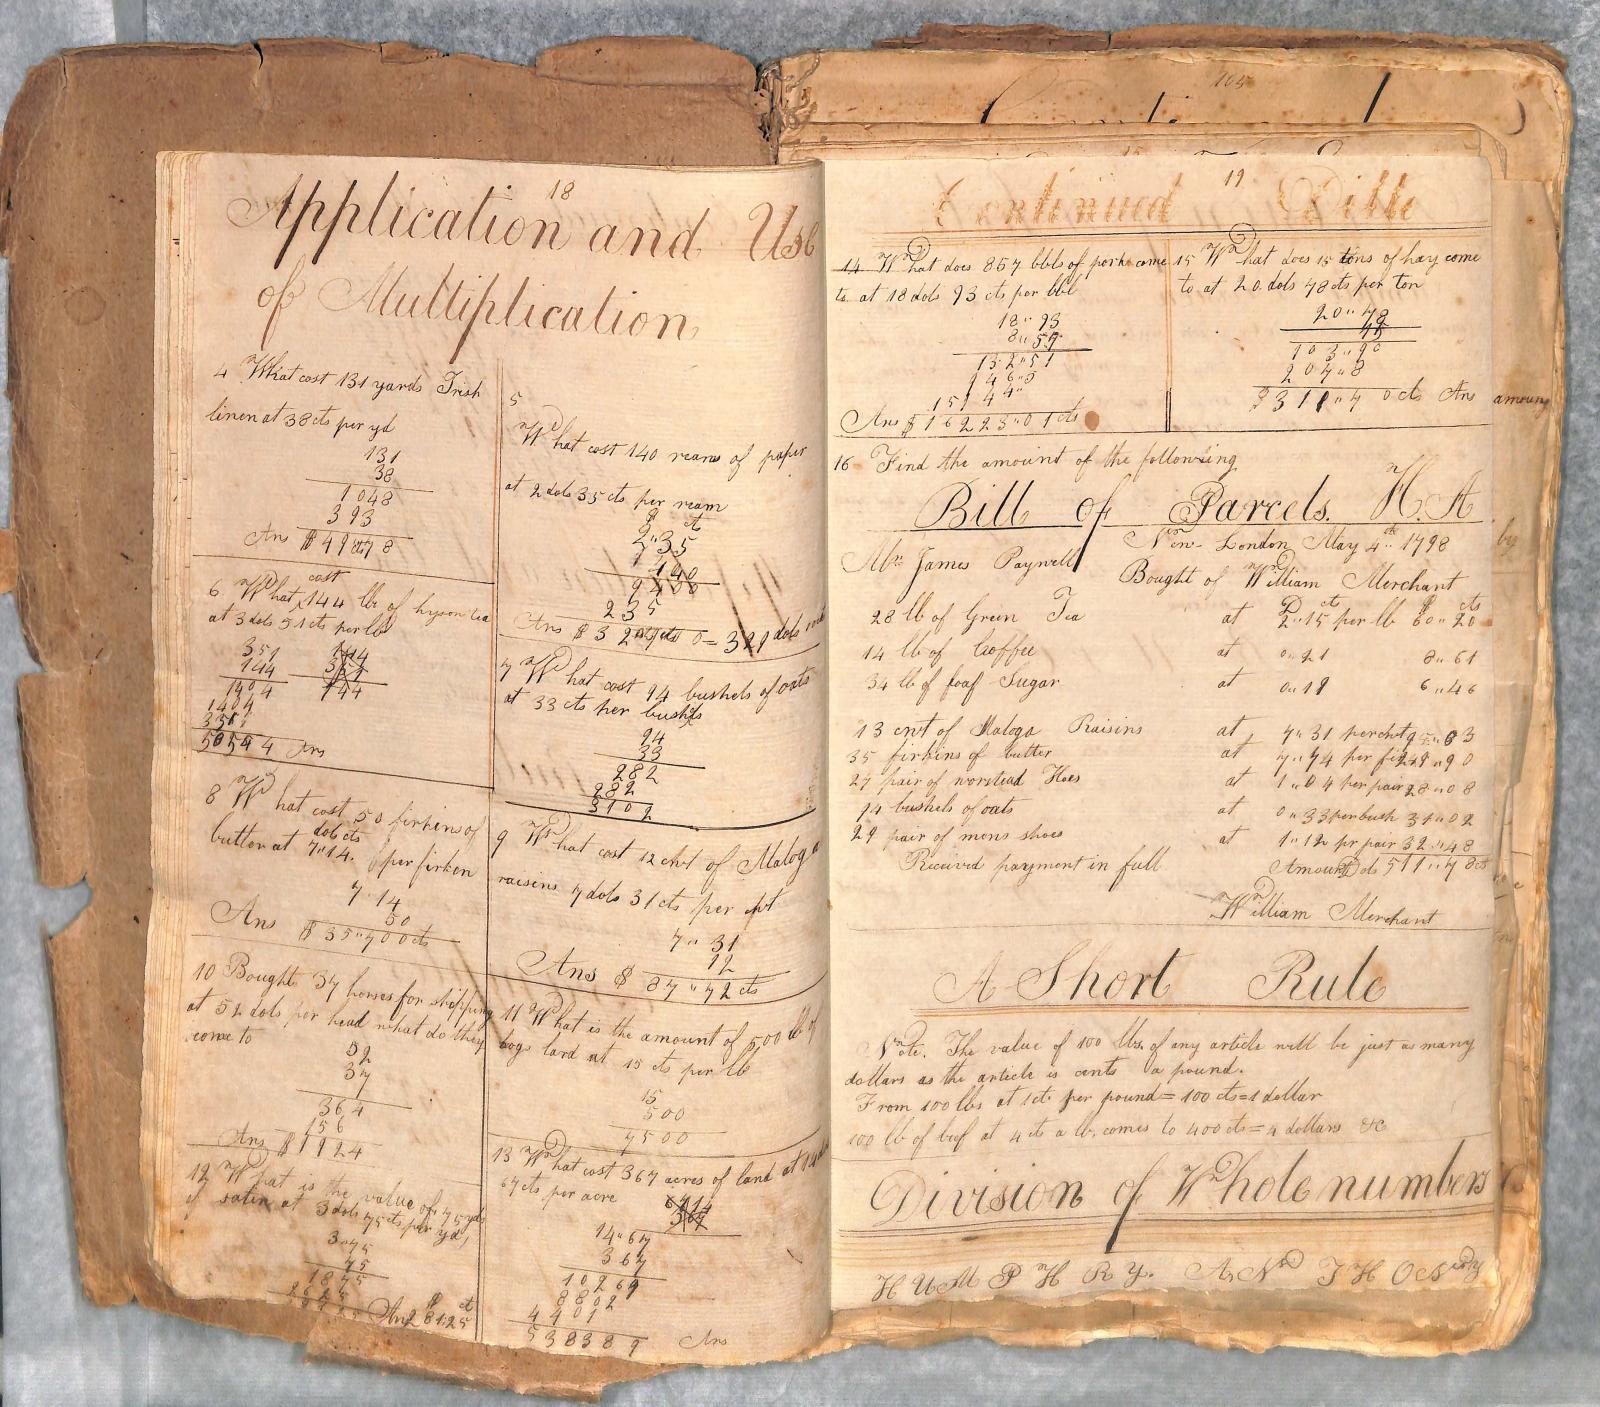 18
Application and Use
of Multiplication
4 What cost 131 yards Irish
linen at 38 cts per yd
131
38
1048
393
Ans $49 cts 78
5
What cost 140 reams of paper
at 2 dols 35 cts per ream
$ cts
2"35
140
9400
235
Ans $ 3 2 0 = 329 dols
6 What cost 144 lb of hyson tea
at 3 dols 51 cts per lb
351
144
1404
1404
351
50544 Ans
144
351
144
7 What cost 94 bushels of oats
at 33 cts per bushls
94
33
282
282
3102
8 What cost 50 firkins of
dols cts
butter at 7"14. per firken
7 14
50
Ans $ 35"700 cts
9 What cost 12 cwt of Malaga
raisins 7 dols 31 cts per cwt
7" 31
12
Ans $ 87"72 cts
10 Bought 37 horses for shipping
at 52 dols per head what do they
come to
52
37
364
156
Ans $1924
11 What is the amount of 500 lb of
hogs lard at 15 cts per lb
15
500
7500
12 What is the value of 75 yds
of satin at 3 dols 75 cts per yd,
3"75
75
1875
2625
Ans $ 281.25 ct
13 What cost 367 acres of land at 14
67 cts per acre
14"67
367
10269
8802
4401
538389 Ans
105
19
Continued Bills
14 What does 857 bbls of pork come
to at 18 dols 93 cts per bbl
18"93
8"57
132"51
946"5
1514 4"
Ans $16223"01 cts
15 What does 15 tons of hay come
to at 20 dols 78 cts per ton
20"78
15
103"90
207"8
$311"70 cts Ans
amoung
16 Find the amount of the following
Bill of Parcels. H.A
New-London May 4th 1798
Mr James Paywell
Bought of William Merchant
D cts $ cts
28 lb of Green Tea at 2"15 per lb 60"20
14 lb of Coffee at 0"21 8"61
34 lb of foaf Sugar at 0"19 6"46
13 cwt of Maloga Raisins at 7"31 per cwt 95"03
35 firkins of butter at 7"14 per fir 249"90
27 pair of worstead Hoes at 1"04 per pair 28"08
94 bushels of oats at 0"33 per bush 31"02
29 pair of mens shoes at 1"12 per pair 32"48
Received payment in full Amount Dols 511"78 cts
William Merchant
A Short Rule
Note. The value of 100 lbs. of any article will be just as many
dollars as the article is cents a pound.
From 100 lbs at 1ct per pound = 100 cts = 1 dollar
100 lb of beef at 4 cts a lb. comes to 400 cts = 4 dollars &c
Division of Whole numbers
HUMPHRY. AND